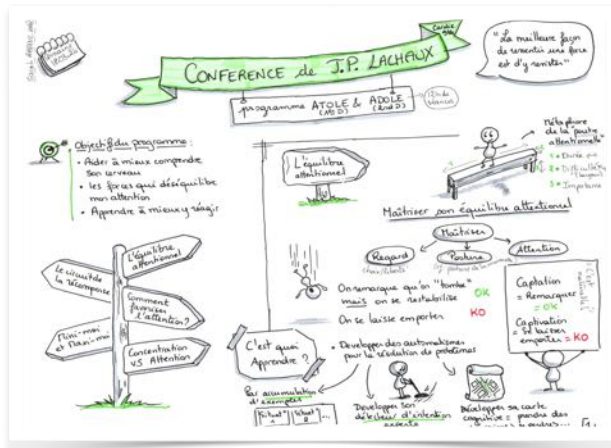 CONFERENCE de J.P. LACHAUX
programme ATOLE & ADOLE
(1er D) (2nd D)
"La meilleure façon
de ressentir une force
est d'y résister"
Objectif du programme :
• Aider à mieux comprendre
son cerveau
• les forces qui déséquilibre
mon attention
• Apprendre à mieux y réagir
L'équilibre
attentionnel
Le circuit de
la récompense
Comment
favoriser
l'attention ?
Mini-moi
et Maxi-moi
Concentration
VS Attention
L'équilibre
attentionnel
Métaphore
de la poutre
attentionnelle
1 = Durée
2 = Difficulté
3 = Importance
Maîtriser son équilibre attentionnel
Maîtriser
Regard
Posture
Attention
On remarque qu'on "tombe"
mais on se restabilise OK
On se laisse emporter KO
Captation
= Remarquer
= OK
Captivation
= Se laisser
emporter = KO
C'est quoi
Apprendre ?
• Développer des automatismes
pour la résolution de problèmes
Par accumulation
d'exemples
Développer son
détecteur d'intention
Développer sa carte
cognitive = prendre des